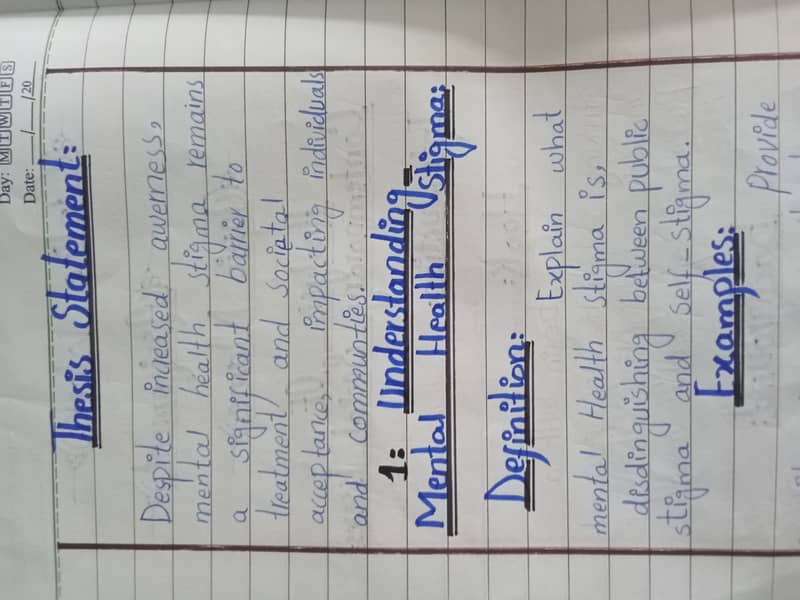 Day: M T W T F S
Date: __/__/20__
Thesis Statement:
Despite increased awerness,
mental health stigma remains
a significant barrier to
treatment and societal
acceptance, impacting individuals
and communties.
1: Understanding
Mental Health Stigma:
Definition:
Explain what
mental Health stigma is,
disdinguishing between public
stigma and self-stigma.
Examples:
Provide